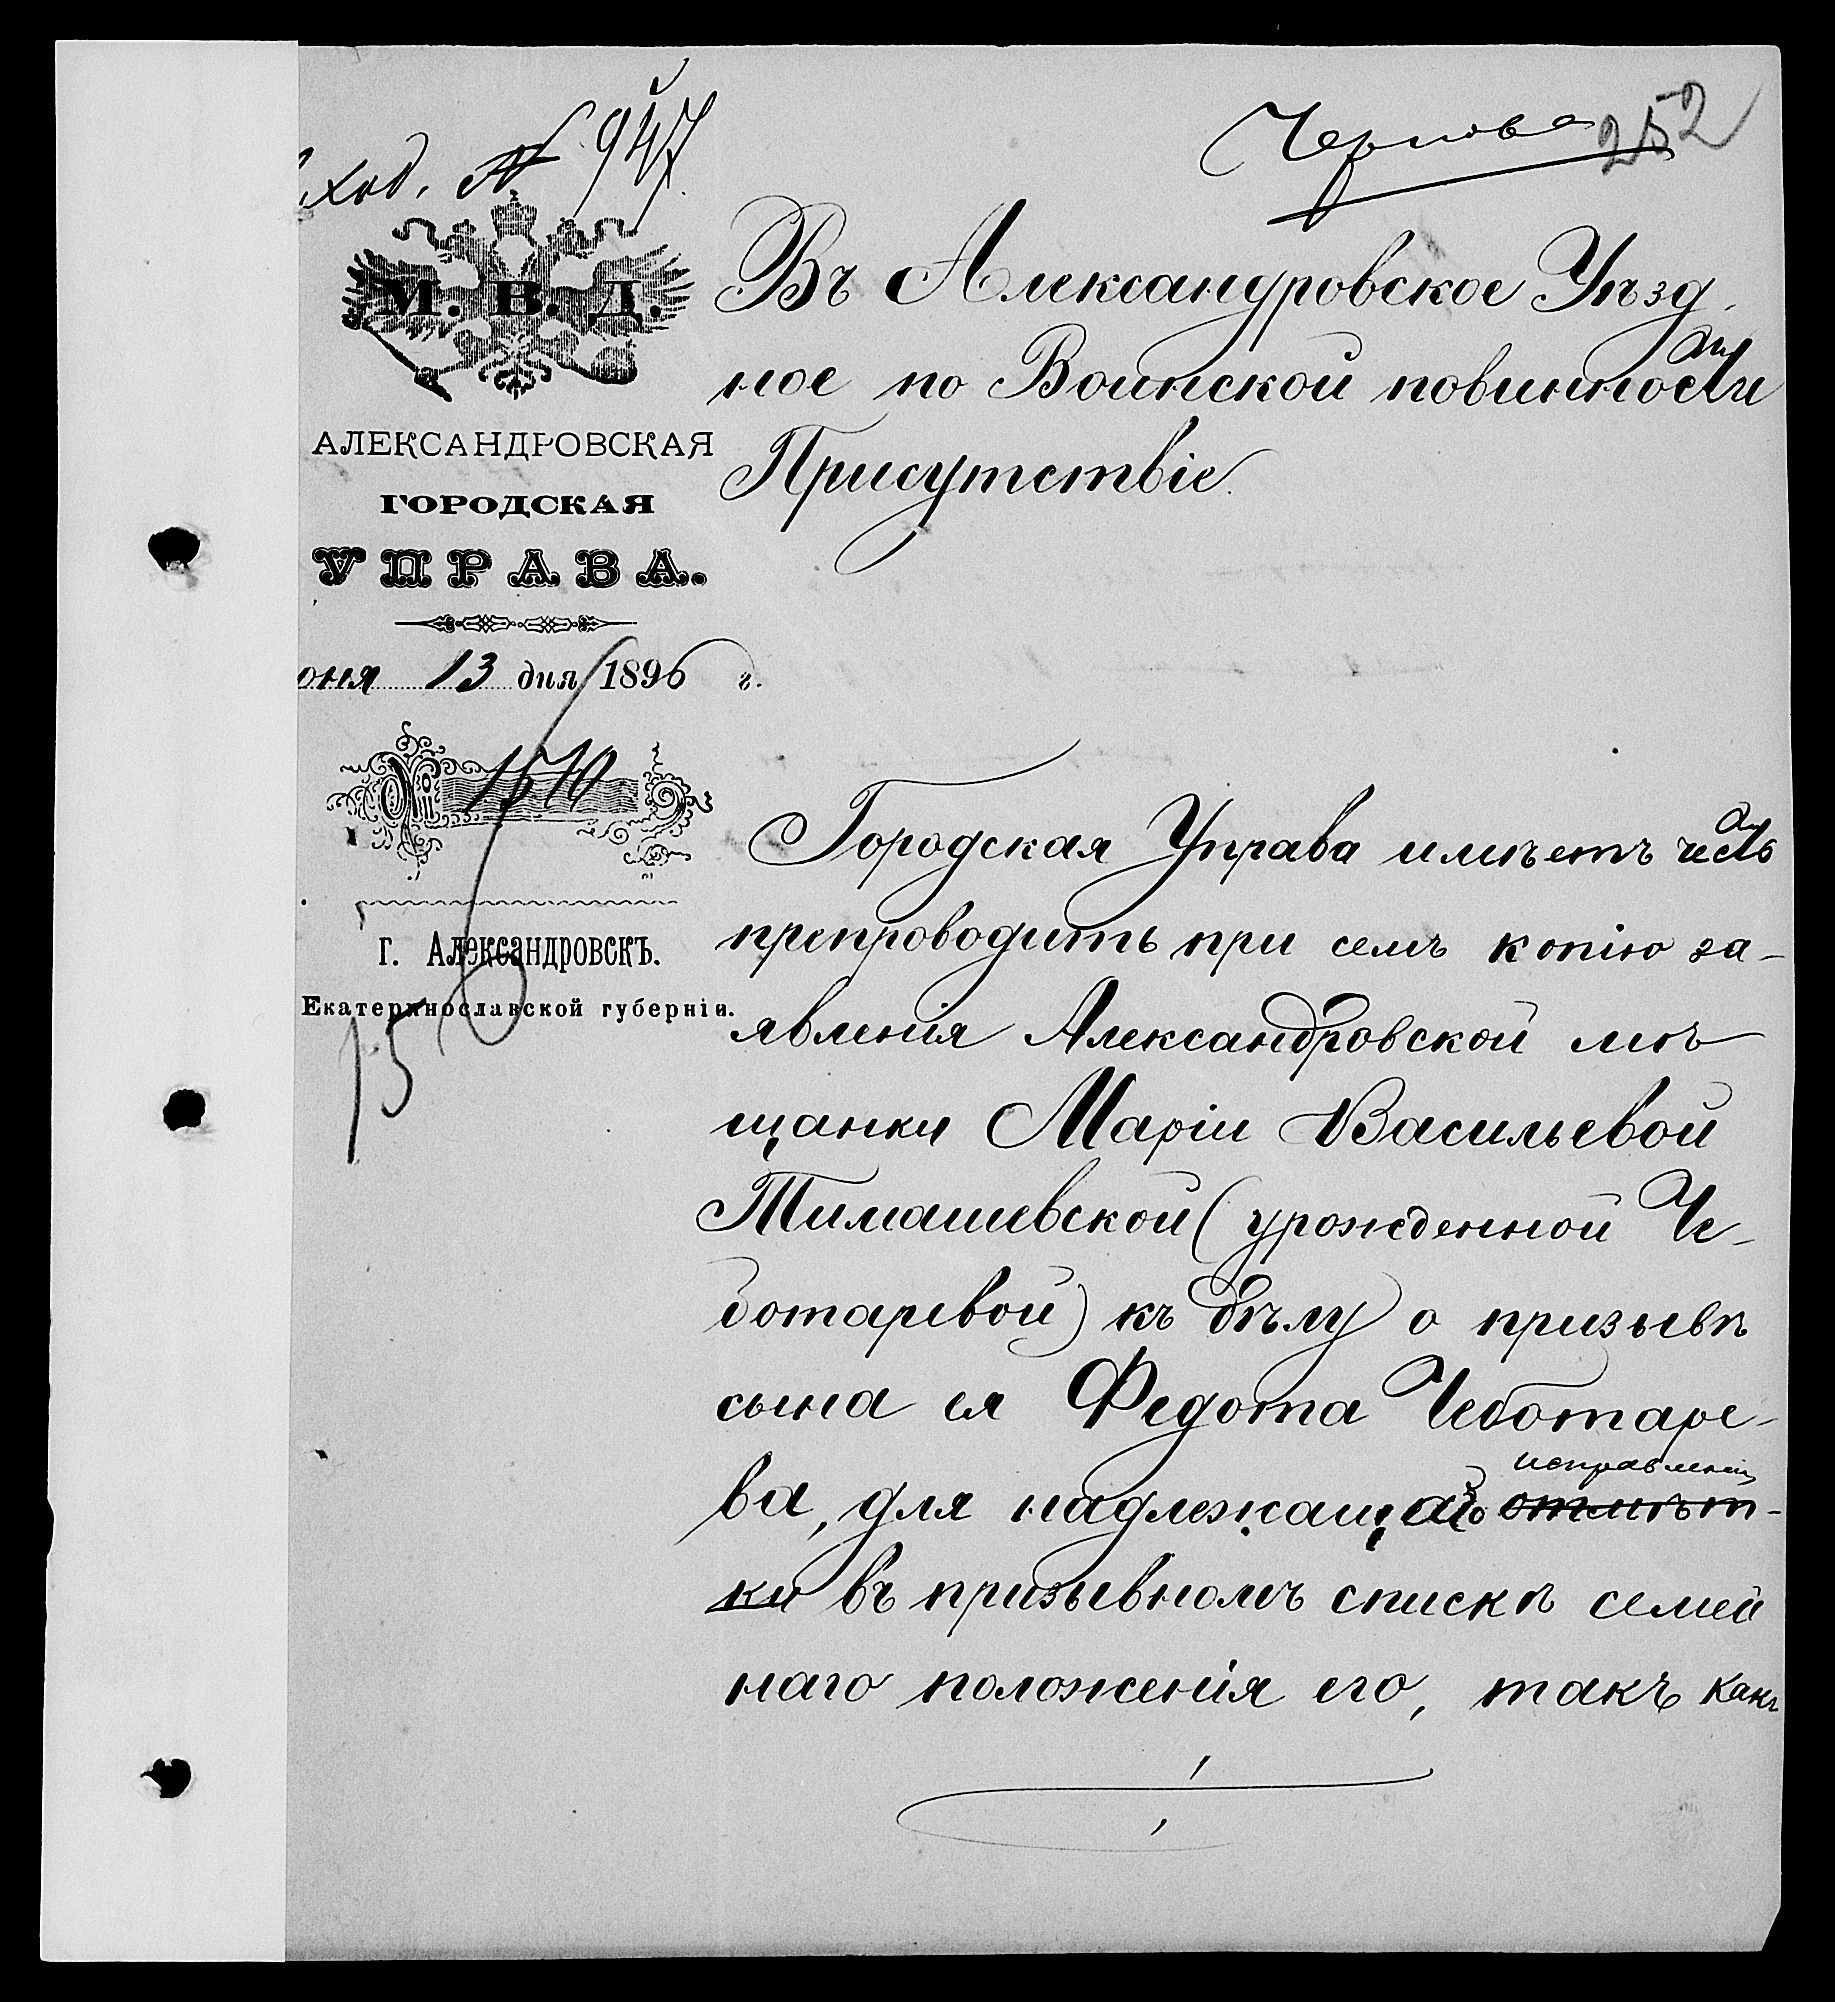 ход. № 947
252
М. В. Д.
АЛЕКСАНДРОВСКАЯ
ГОРОДСКАЯ
УПРАВА.
юня 13 дня 1896 г.
№ 1570
г. Александровскъ.
Екатеринославской губерніи.
15
Въ Александровское Уѣзд
ное по Воинской повинности
Присутствіе.
Городская Управа имѣетъ честь
препроводить при семъ копію за-
явленія Александровской мѣ
щанки Маріи Васильевой
Тимашевской (урожденной Че-
ботаревой) къ дѣлу о призывѣ
сына ея Федота Чеботаре-
исправленія
ва, для надлежащаго отмѣт-
ки въ призывномъ спискѣ семей
наго положенія его, такъ какъ